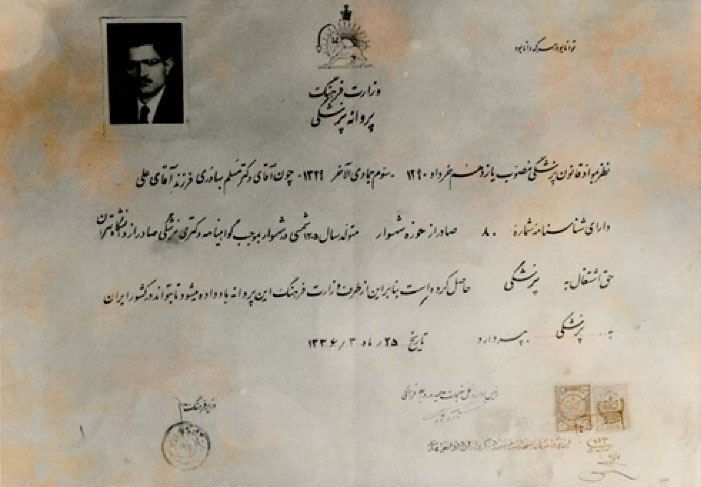 توانا بود هر که دانا بود
وزارت فرهنگ
پروانه پزشکی
نظر بمواد قانون پزشکی مصوب یازدهم خرداد ۱۲۹۰ - سوم جمادی الآخر ۱۳۲۹ - چون آقای دکتر مسلم بهادری فرزند آقای علی
دارای شناسنامه شماره ۸۰ صادر از حوزه شهسوار متولد سال ۱۳۰۵ شمسی در شهسوار بموجب گواهینامه دکتری پزشکی صادر از دانشگاه تهران
حق اشتغال به پزشکی حاصل کرده است بنابراین از طرف وزارت فرهنگ این پروانه باو داده میشود تا بتواند در کشور ایران
به پزشکی بپردازد تاریخ ۲۵ ر ماه ۳ ر ۱۳۳۶
وزیر فرهنگ